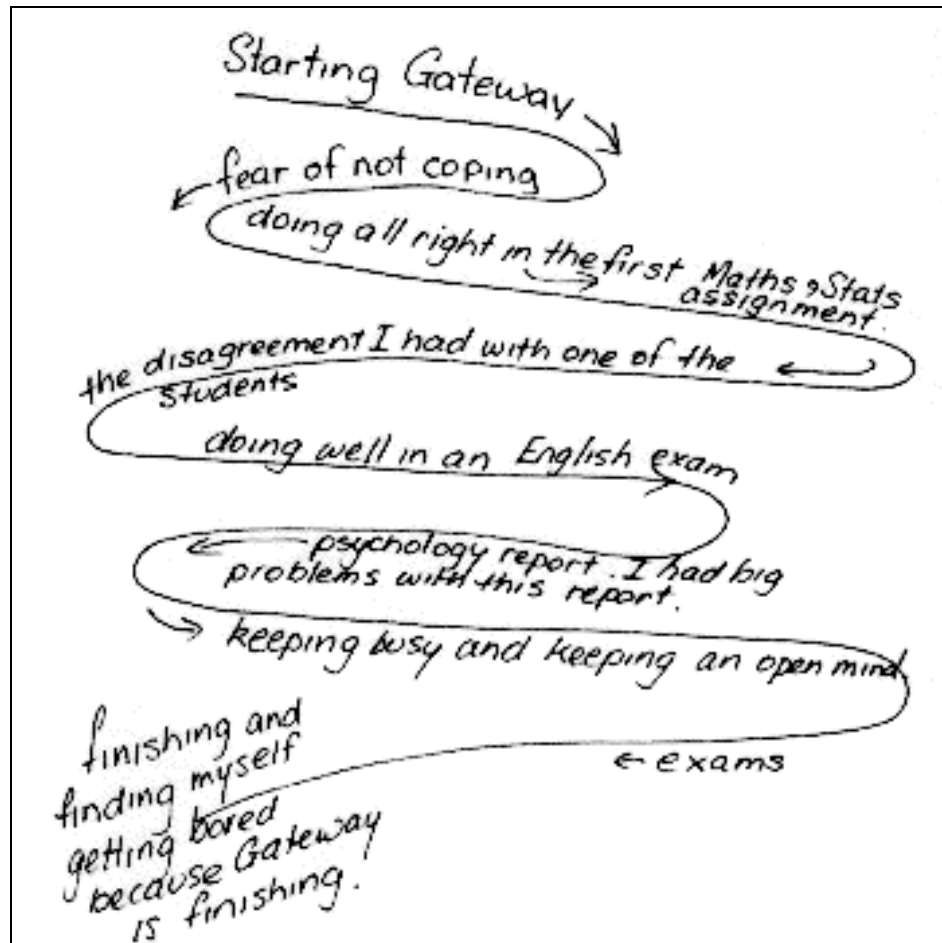 Starting Gateway
fear of not coping
doing all right in the first Maths, Stats
assignment.
the disagreement I had with one of the
students
doing well in an English exam
psychology report. I had big
problems with this report.
keeping busy and keeping an open mind
← exams
finishing and
finding myself
getting bored
because Gateway
is finishing.